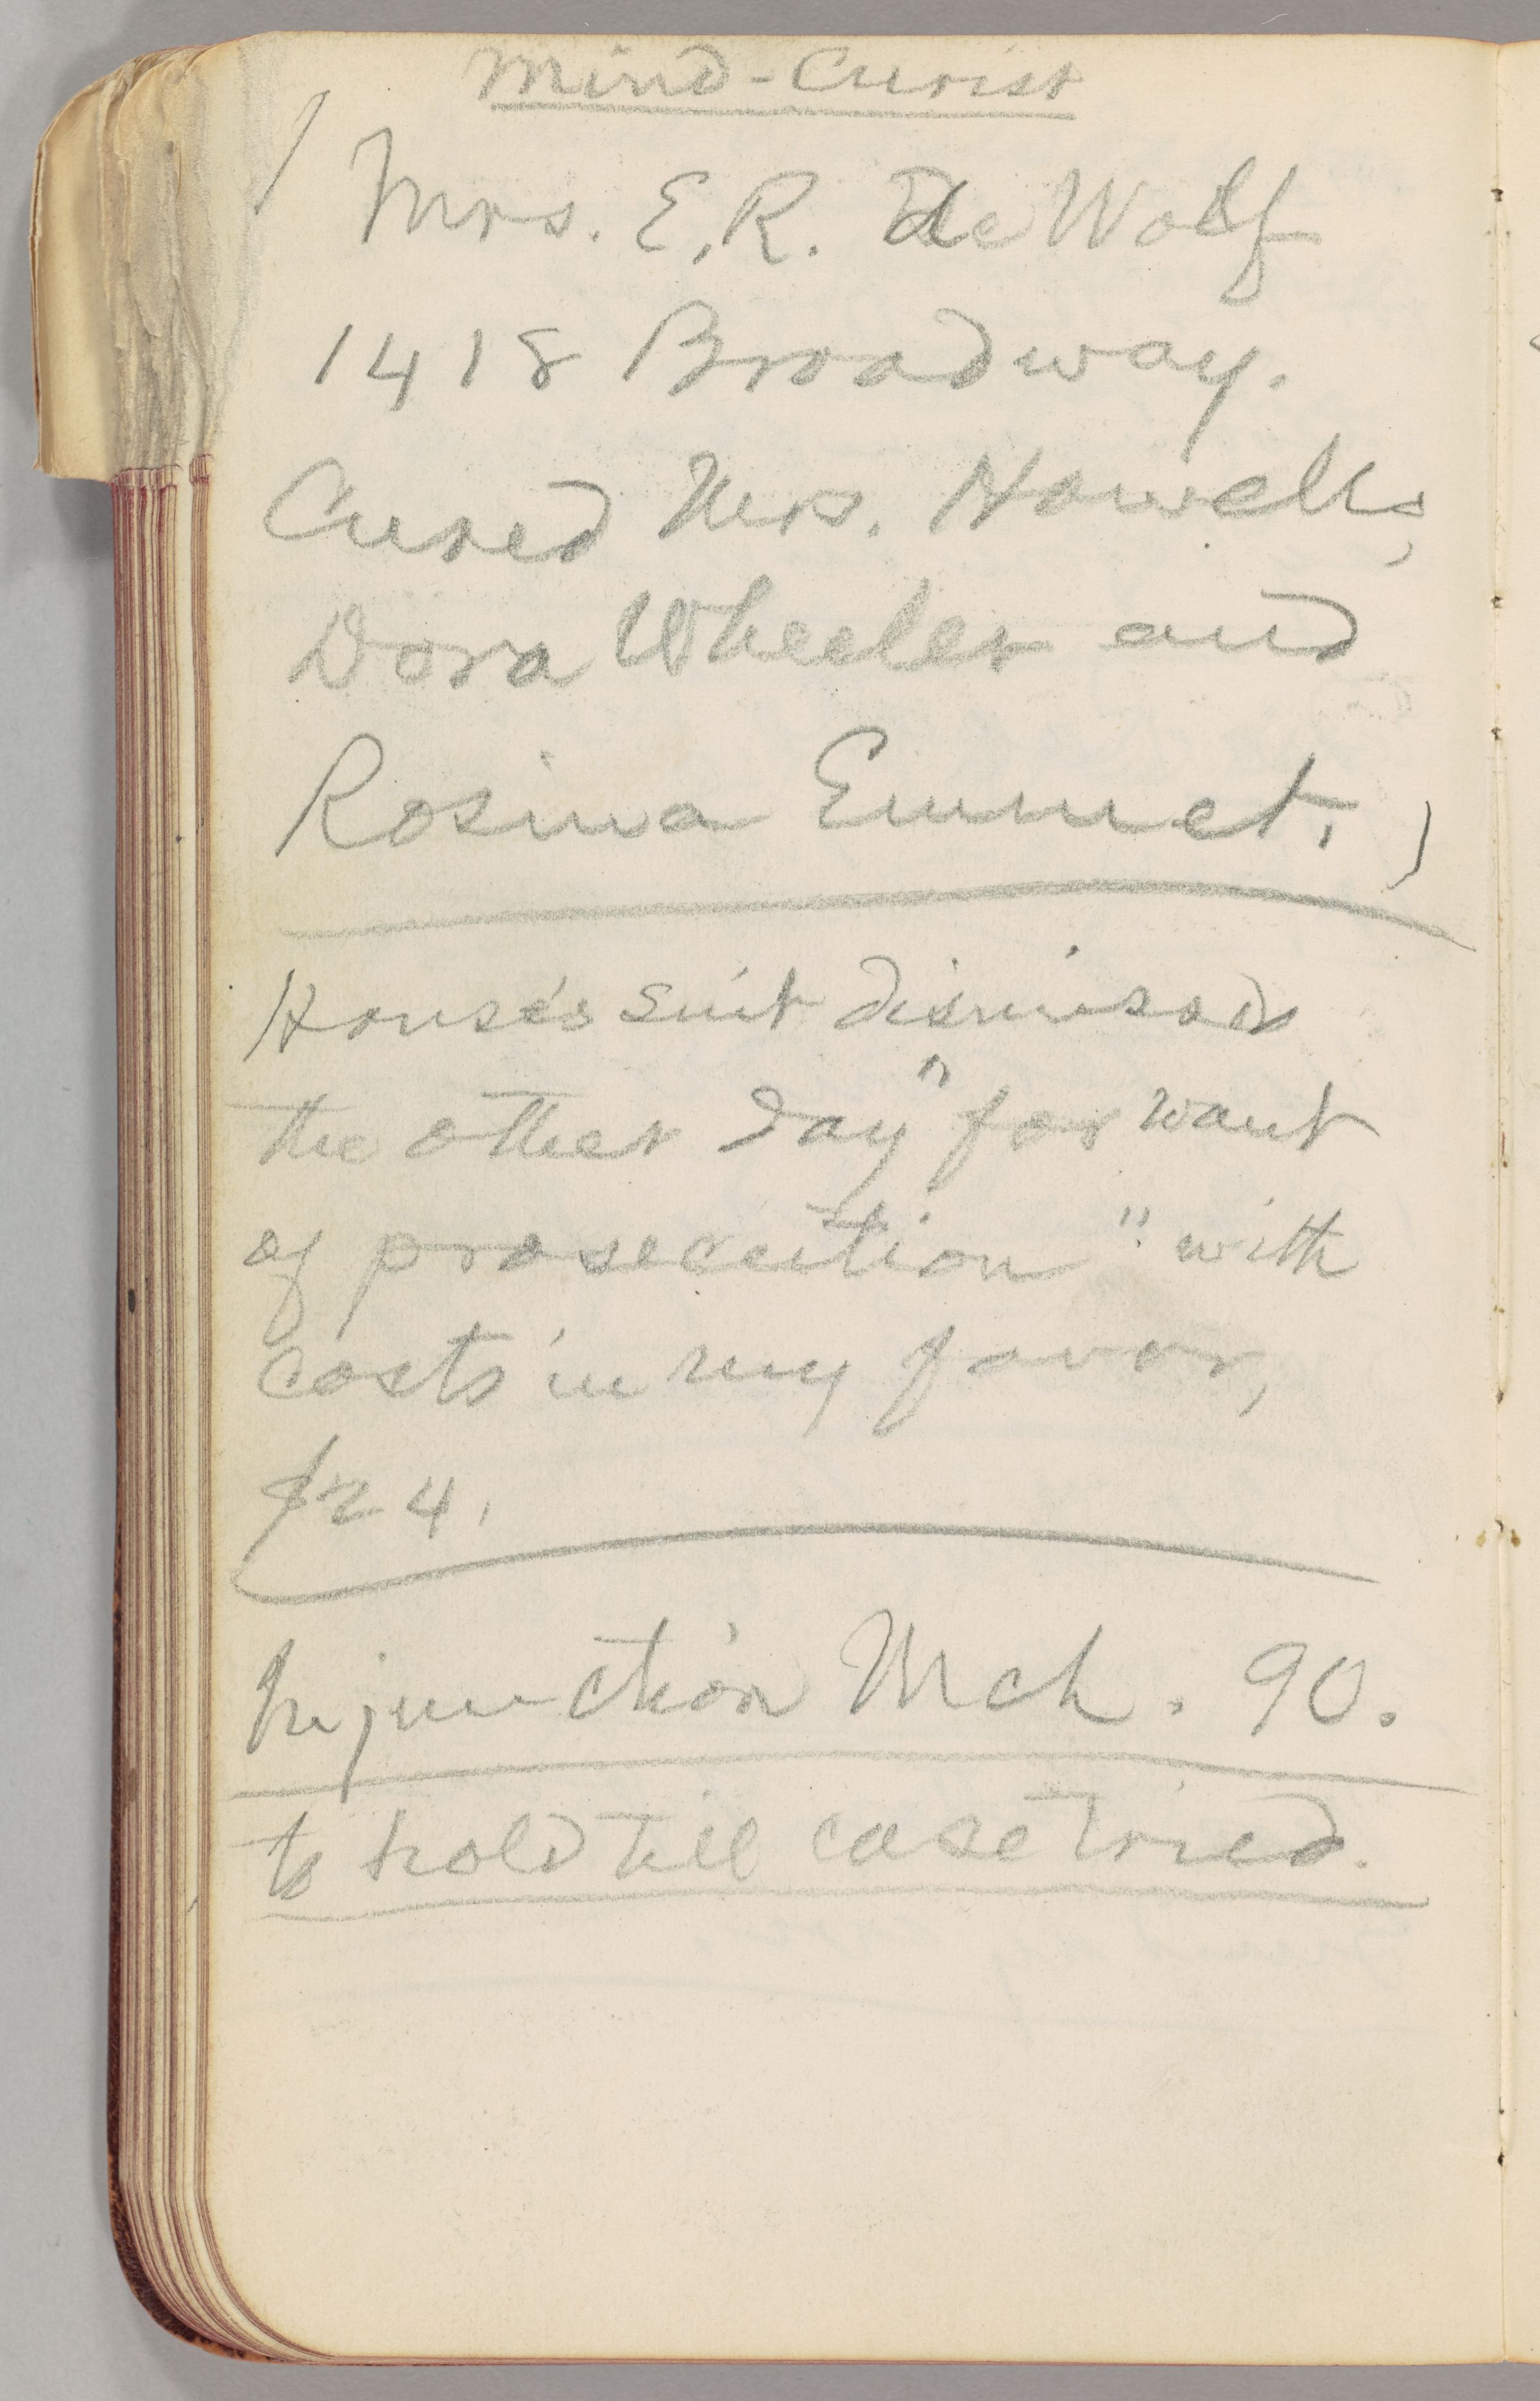 Mind-Curist
Mrs. E. R. de Wolf
1418 Broadway.
Cured Mrs. Howells,
Dora Wheeler and
Rosina Emmet.)
House's suit dismissed
the other day "for want
of prosecution" with
costs in my favor,
$24.
Injunction Mch. 90.
to hold till case tried.